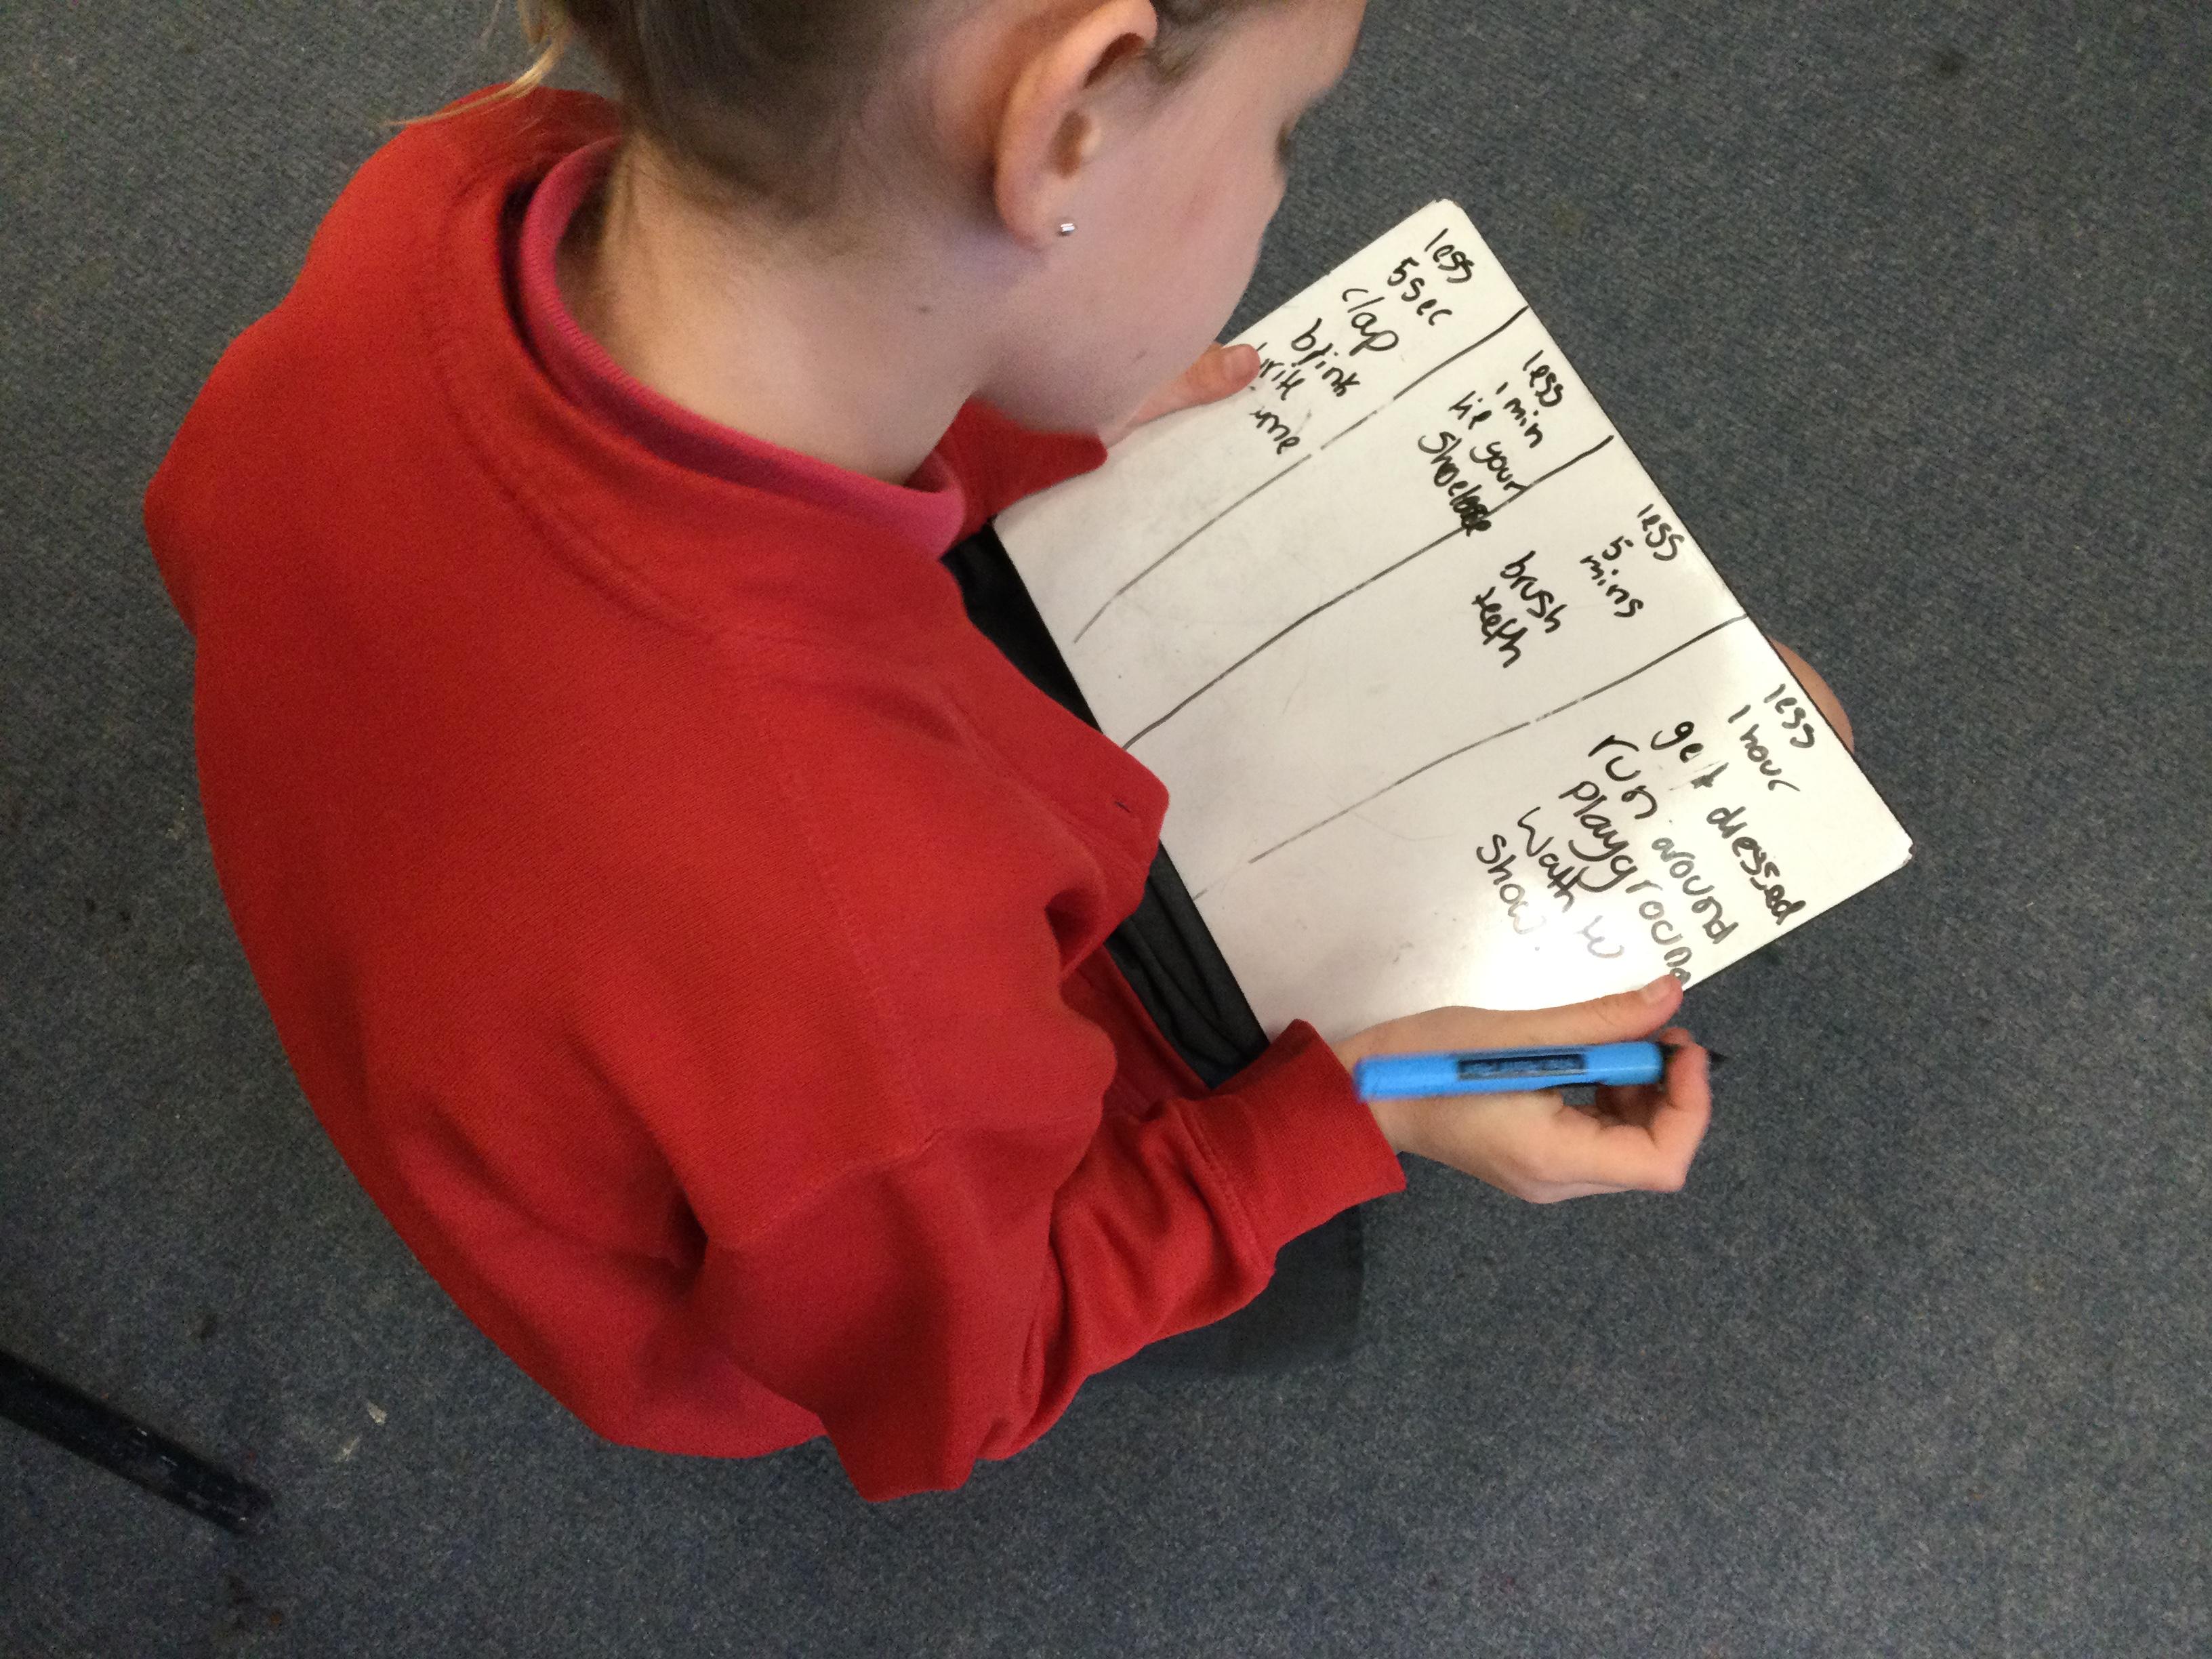 less
5 sec
clap
blink
less
1 min
tie your
less
5
mins
brush
teeth
less
1 hour
get dressed
run around
playground
show.